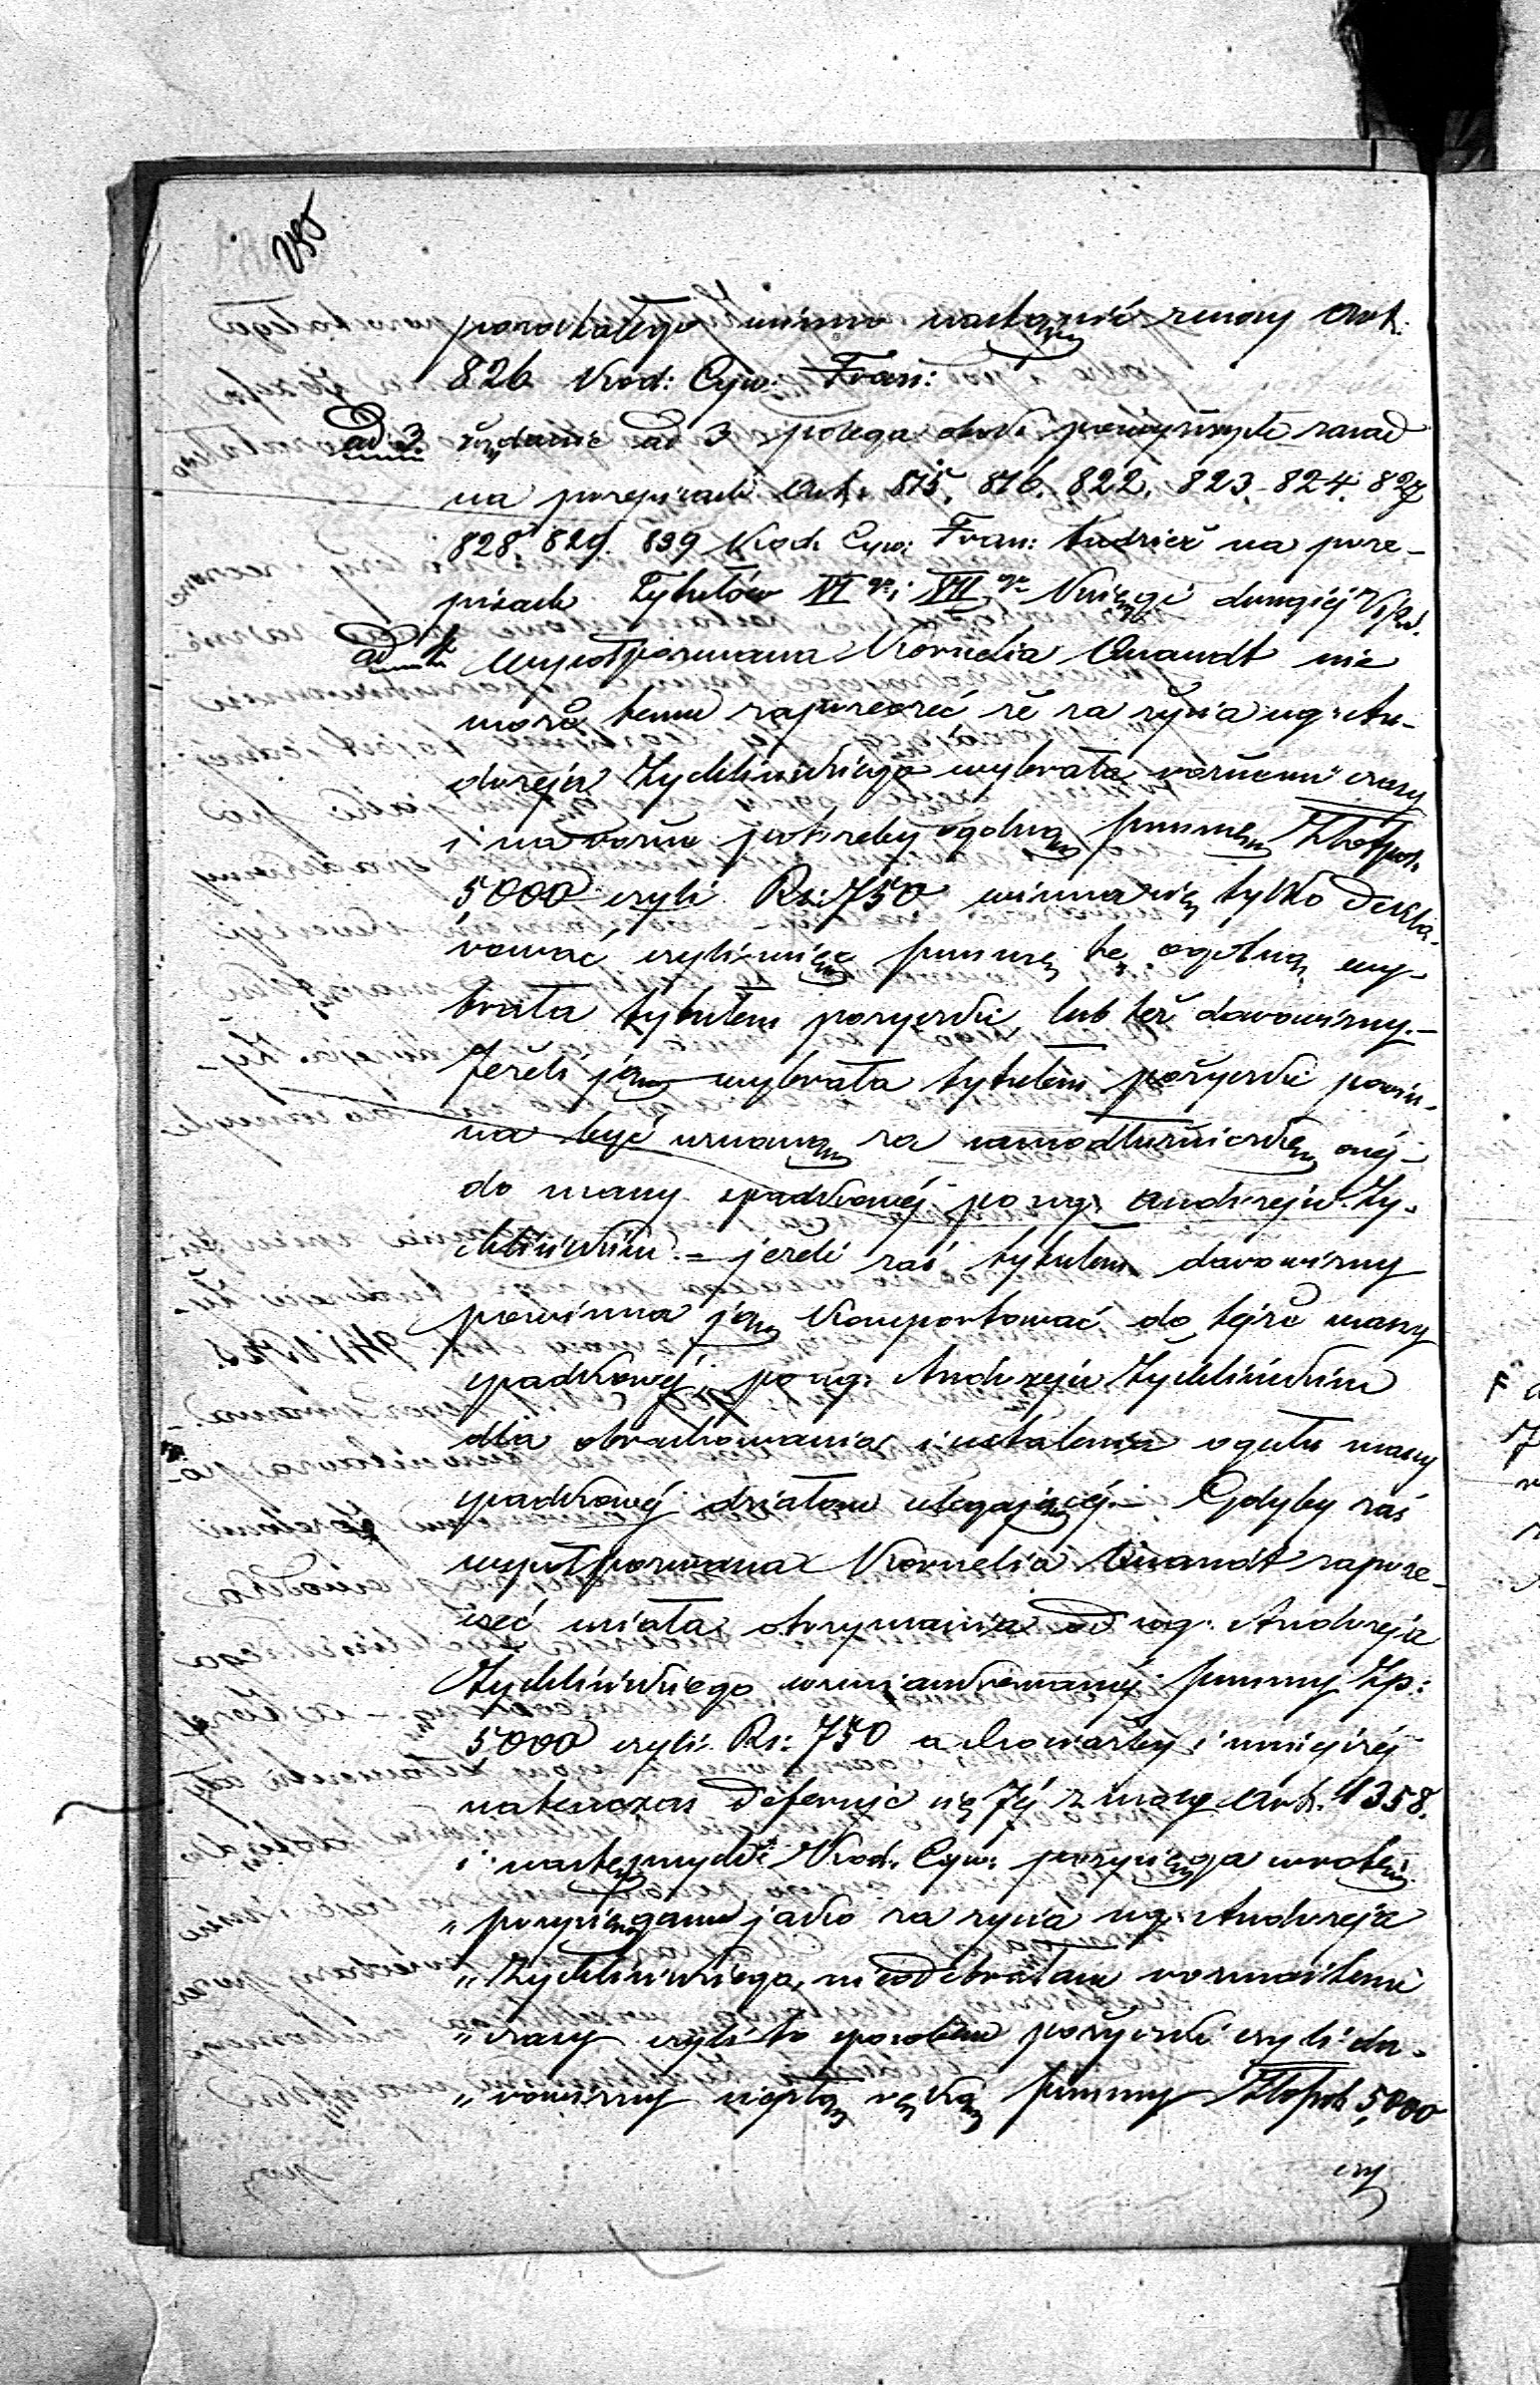 pozostałego winno nastąpić z mocy Art:
826 Kod: Cyw: Fran:
ad 3 żądanie ad 3 polega obok powyższych zasad
na przepisach Art: 815. 816. 822. 823. 824. 827
828. 829. 839 Kod: Cyw: Fran: tudzież na prze-
pisach Tytułów VI go i VII go Księgi drugiej
ad 4 Współpozwana Kornelia Quandt nie
może temu zaprzeczeć że za życia ug: An-
drzeja Zychlińskiego wybrała różnemi czasy
i na różne potrzeby ogólną summę Złotpol:
5,000 czyli Rs: 750 winna się tylko dekla-
rować czyli więc summę tę ogólną wy-
brała tytułem pożyczki, lub też darowizny.–
Jeżeli ją wybrała tytułem pożyczki powin-
na być uznaną za samodłużniczkę onéj–
do massy spadkowéj po ug: Andrzeju Zy-
chlińskim – jeżeli zaś tytułem darowizny
powinna ją konportować do téjże massy
spadkowéj po ug: Andrzeju Zychlińskim
dla obrachowania i ustalenia ogółu massy
spadkowéj działom ulegającéj.– Gdyby zaś
współpozwana Kornelia Quandt zaprze-
czeć miała otrzymania od ug: Andrzeja
Zychlińskiego wzmiankowanéj summy Zp:
5,000 czyli Rs: 750 a chociażby i mniejszéj
natenczas deferuje się Jéj z mocy Art: 1358.
i następnych Kod: Cyw: przysięga w rotę:
„przysięgam jako za życia ug: Andrzeja
„Zychlińskiego, nieodebrałam rozmaitemi
„czasy czyli to sposobem pożyczki czyli da-
„rowizny ciepłą ręką summy Złotpol: 5,000
czy